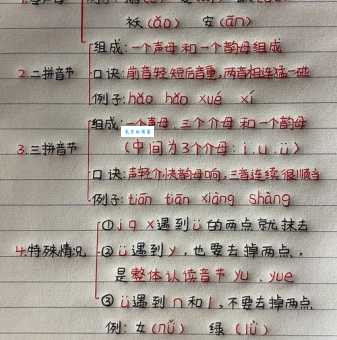 袄(ǎo) 安(ān)
组成:一个声母和一个韵母组成
2.二拼音节
口诀:前音轻短后音重,两音相连猛一碰
例子:hǎo hǎo xué xí
组成:一个声母、三个介母和一个韵母
3.三拼音节
(中间为3个介母:i.u.ü)
口诀:声轻介快韵母响,三音连续很顺当
例子:tiān tiān xiàng shàng
①j q x遇到ü的两点就抹去
4.特殊情况
②ü遇到y,也要去掉两点,
是整体认读音节yu、yue
③ü遇到n和l,不要去掉两点
例:女(nǚ) 绿(lǜ)